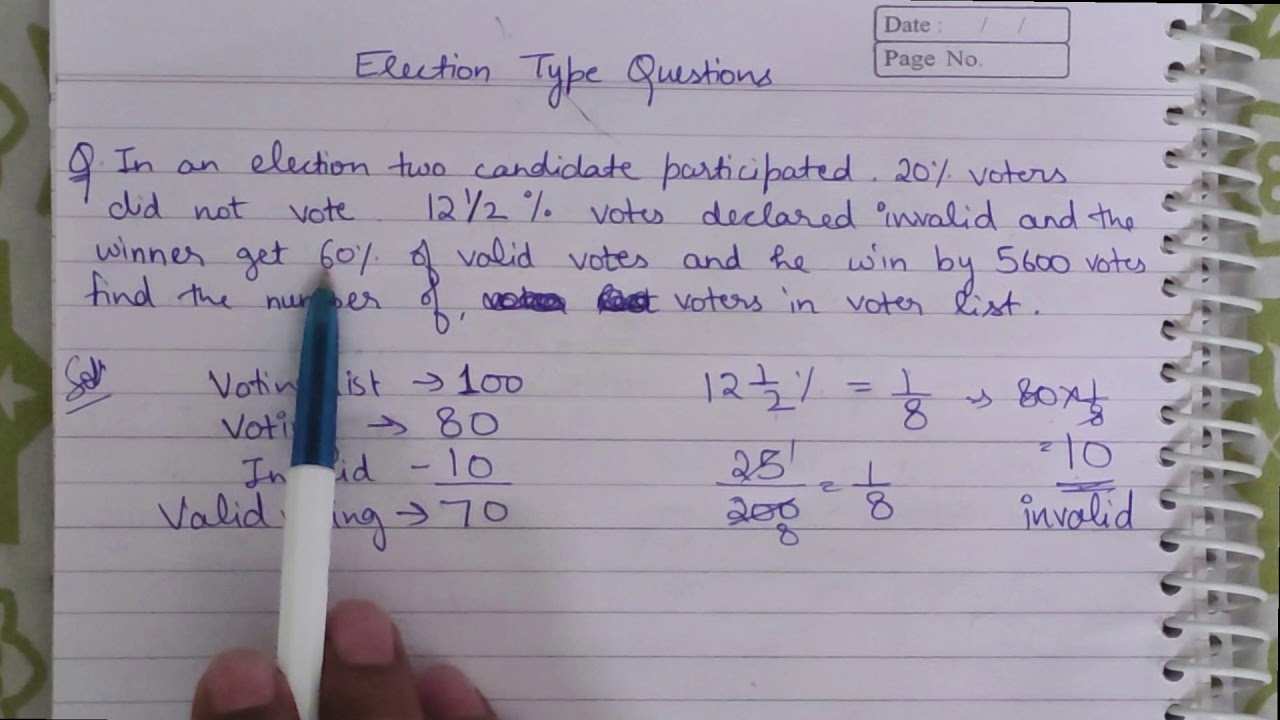 Date : / /
Page No.
Election Type Questions
Q. In an election two candidate participated. 20% voters
did not vote. 12 1/2 % votes declared invalid and the
winner get 60% of valid votes and he win by 5600 votes
find the number of, voters in voter list.
Sol
Voting list → 100
Voting → 80
Invalid - 10
Valid → 70
12 1/2 % = 1/8 → 80 x 1/8
25/200 = 1/8
1
8
= 10
invalid